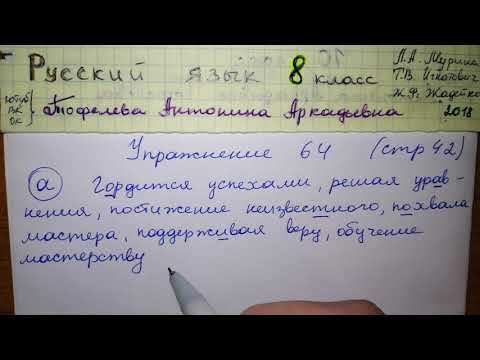 Русский язык 8 класс
Л.А. Мурина
Т.В. Игнатович
Ж.Ф. Жадейко
2018
Ютуб
ВК
ОК
Тюфелева Антонина Аркадьевна
Упражнение 64 (стр 42)
а Гордится успехами, решая урав-
нения, постижение неизвестного, похвала
мастера, поддерживая веру, обучение
мастерству